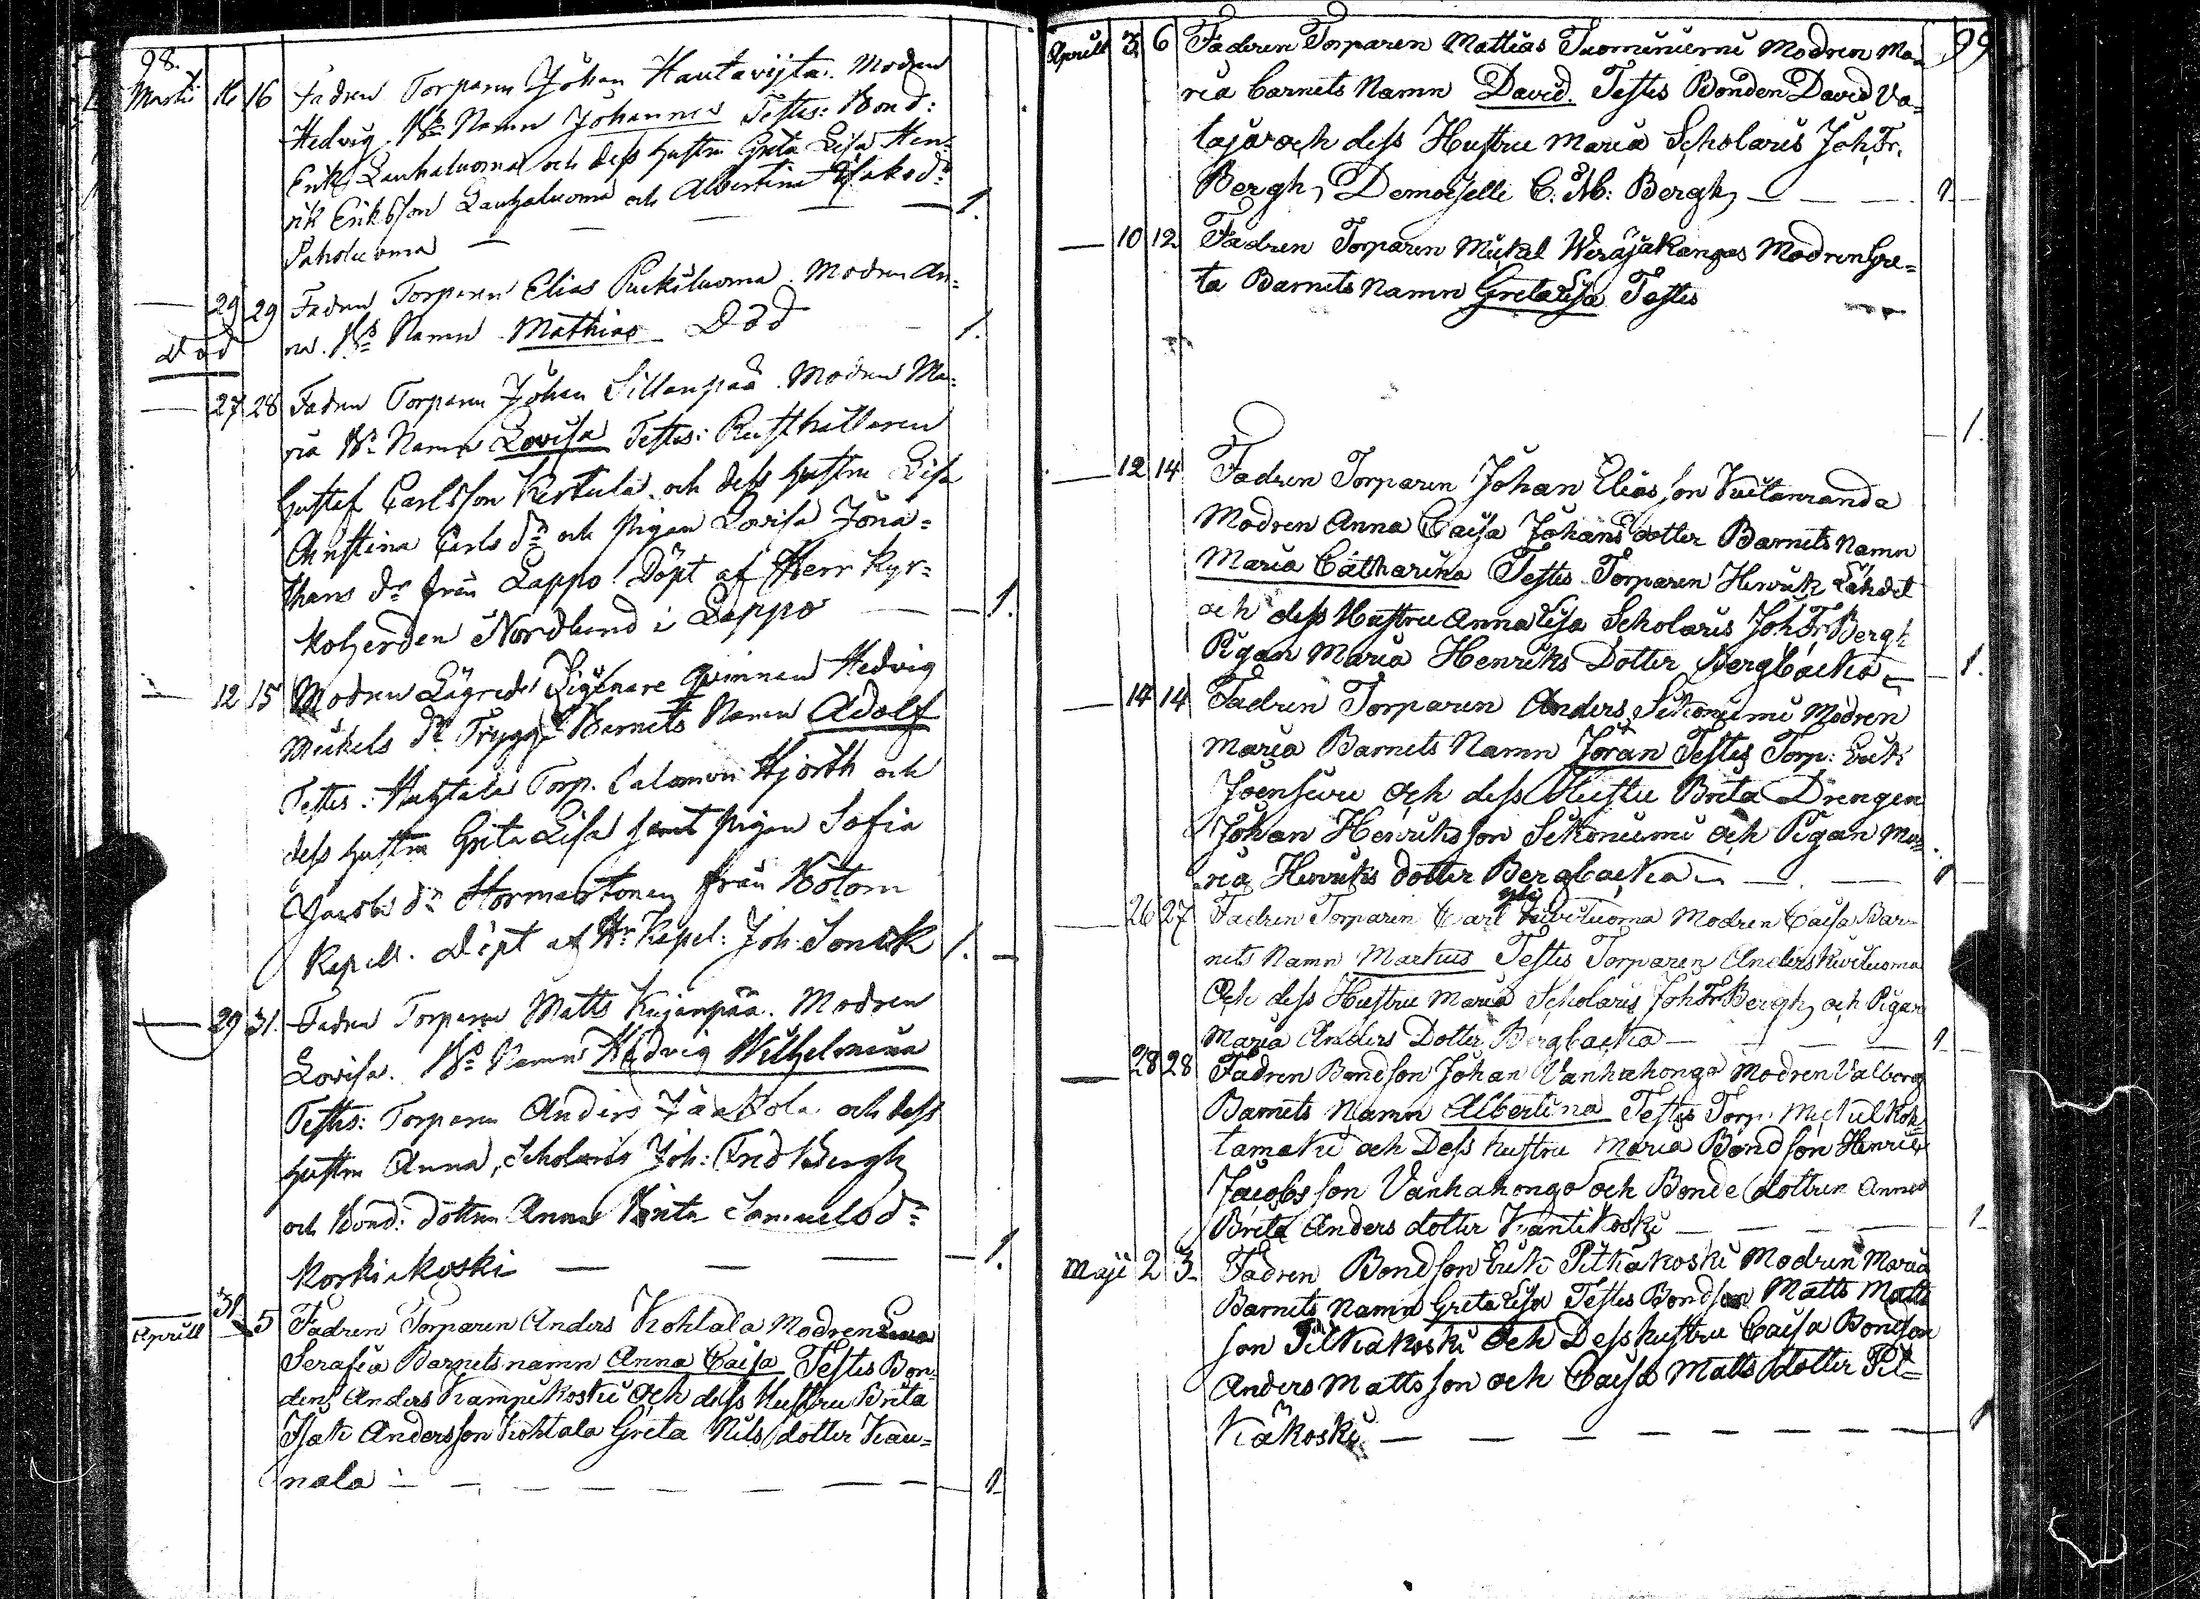 98.
Martii 16 16 Fadren Torparen Johan Hautavijta. Modren
Hedvig. Bs Namn Johannes Testes: Bond:
Erik Lauhaluoma och dess hustru Greta Lisa Hen-
rik Eriksson Lauhaluoma och Albertina Isaksdr
Paholuoma — — — — 1.
— 29 29 Fadren Torparen Elias Puckiluoma. Modren An=
Död
na. Bs Namn Mathias Död — 1.
— 27 28 Fadren Torparen Johan Sillanpää. Modren Ma=
ria Bs Namn Lovisa Testes: Rusthållaren
Gustaf Carlsson Kertula och dess hustru Lisa
Christina Carls dr och Pigan Lovisa Jona=
thans dr från Lappo. Döpt af Herr Kyr=
koherden Nordlund i Lappo — 1.
— 12 15 Modren Lägrade Qvinnan Hedvig
Mickels dr Trygg Barnets Namn Adolf
Testes: Torp. Salomon Hjorth och
dess hustru Greta Lisa samt pigan Sofia
Jacobs dr Stormartonen från
Kapell. Döpt af Hr Kapel: Joh. Sonck 1. —
— 29 31. Fadren Torparen Matts Kujanpää. Modren
Lovisa. Bs Namn Hedvig Wilhelmina
Testes: Torparen Anders Jaakola och dess
hustru Anna, Scholaris Joh: Fred Bergh
och Bond: dottren Anna Brita Samuelsdr
Korkiakoski — — — 1.
31
Aprill — 5 Fadren Torparen Anders Kohtala Modren
Serafia Barnets namn Anna Caisa Testes Bon-
den Anders Kampikoski Och dess Hustru Brita
Isak Andersson Kohtala Greta Nils dotter Kau=
nala — — — — — — 1
99
Aprill 3 6 Fadren Torparen Mattias Tuominiemi Modren Ma
ria barnets Namn David. Testes Bonden David Va=
taja och dess Hustru Maria Scholaris Joh. Fr.
Bergh, Demoiselle C. M: Bergh — — — 1
— 10 12 Fadren Torparen Mickel Weräjäkangas Modren Gre=
ta Barnets Namn Greta Lisa Testes
1.
— 12 14 Fadren Torparen Johan Elias son Vuitanranda
Modren Anna Caisa Johans dotter Barnets Namn
Maria Catharina Testes Torparen Henrik Lähdet
och dess Hustru Anna Lisa Scholaris Joh Fr Bergh
Pigan Maria Henriks Dotter Bergbacka — 1.
— 14 14 Fadren Torparen Anders Sikoniemi Modren
Maria Barnets Namn Jöran Testes Torp: Erik
Joensuu Och dess Hustru Brita Drengen
Johan Henriksson Sikoniemi och Pigan Ma=
ria Henriks dotter Bergbacka — — 1
— 26 27 Fadren Torparen Carl Modren Caisa Bar-
nets Namn Markus Testes Torparen Anders Kiviluoma
Och dess Hustru Maria Scholaris Joh Fr Bergh och Pigan
Maria Anders Dotter Bergbacka — — — 1
— 28 28 Fadren Bondson Johan Vanhahongo Modren Valborg
Barnets Namn Albertina Testes Torp. Mickel Kos-
tamaki och Dess hustru Maria Bondson Henrik
Jacobsson Vanhahongo och Bonde dottren Anna
Brita Anders dotter Kantikoski — — — 1
Maji 2 3 Fadren Bondson Erik Pitkäkoski Modren Maria
Barnets Namn Greta Lisa Testes Bondson Matts Matts
son Pitkäkoski Och Dess hustru Caisa Bondson
Anders Mattsson och Caisa Matts dotter Pit=
käkoski — — — — — — — 1